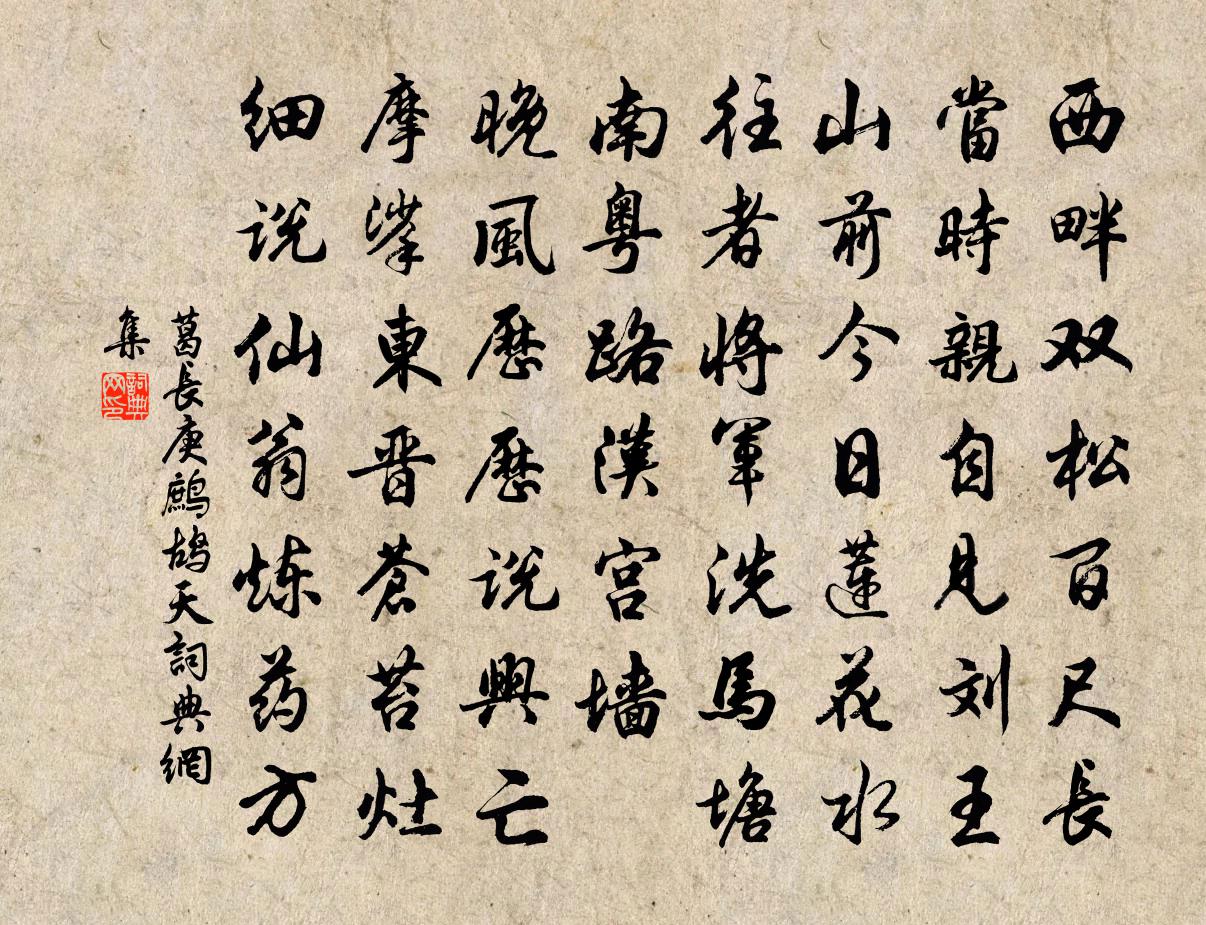 西畔双松百尺長
當時親自見刘王
山前今日蓮花水
往者將軍洗馬塘
南粤路漢宫墙
晚風歷歷説興亡
摩挲東晋蒼苔灶
细説仙翁炼药方
葛長庚鷓鴣天詞典網
集
詞典网印